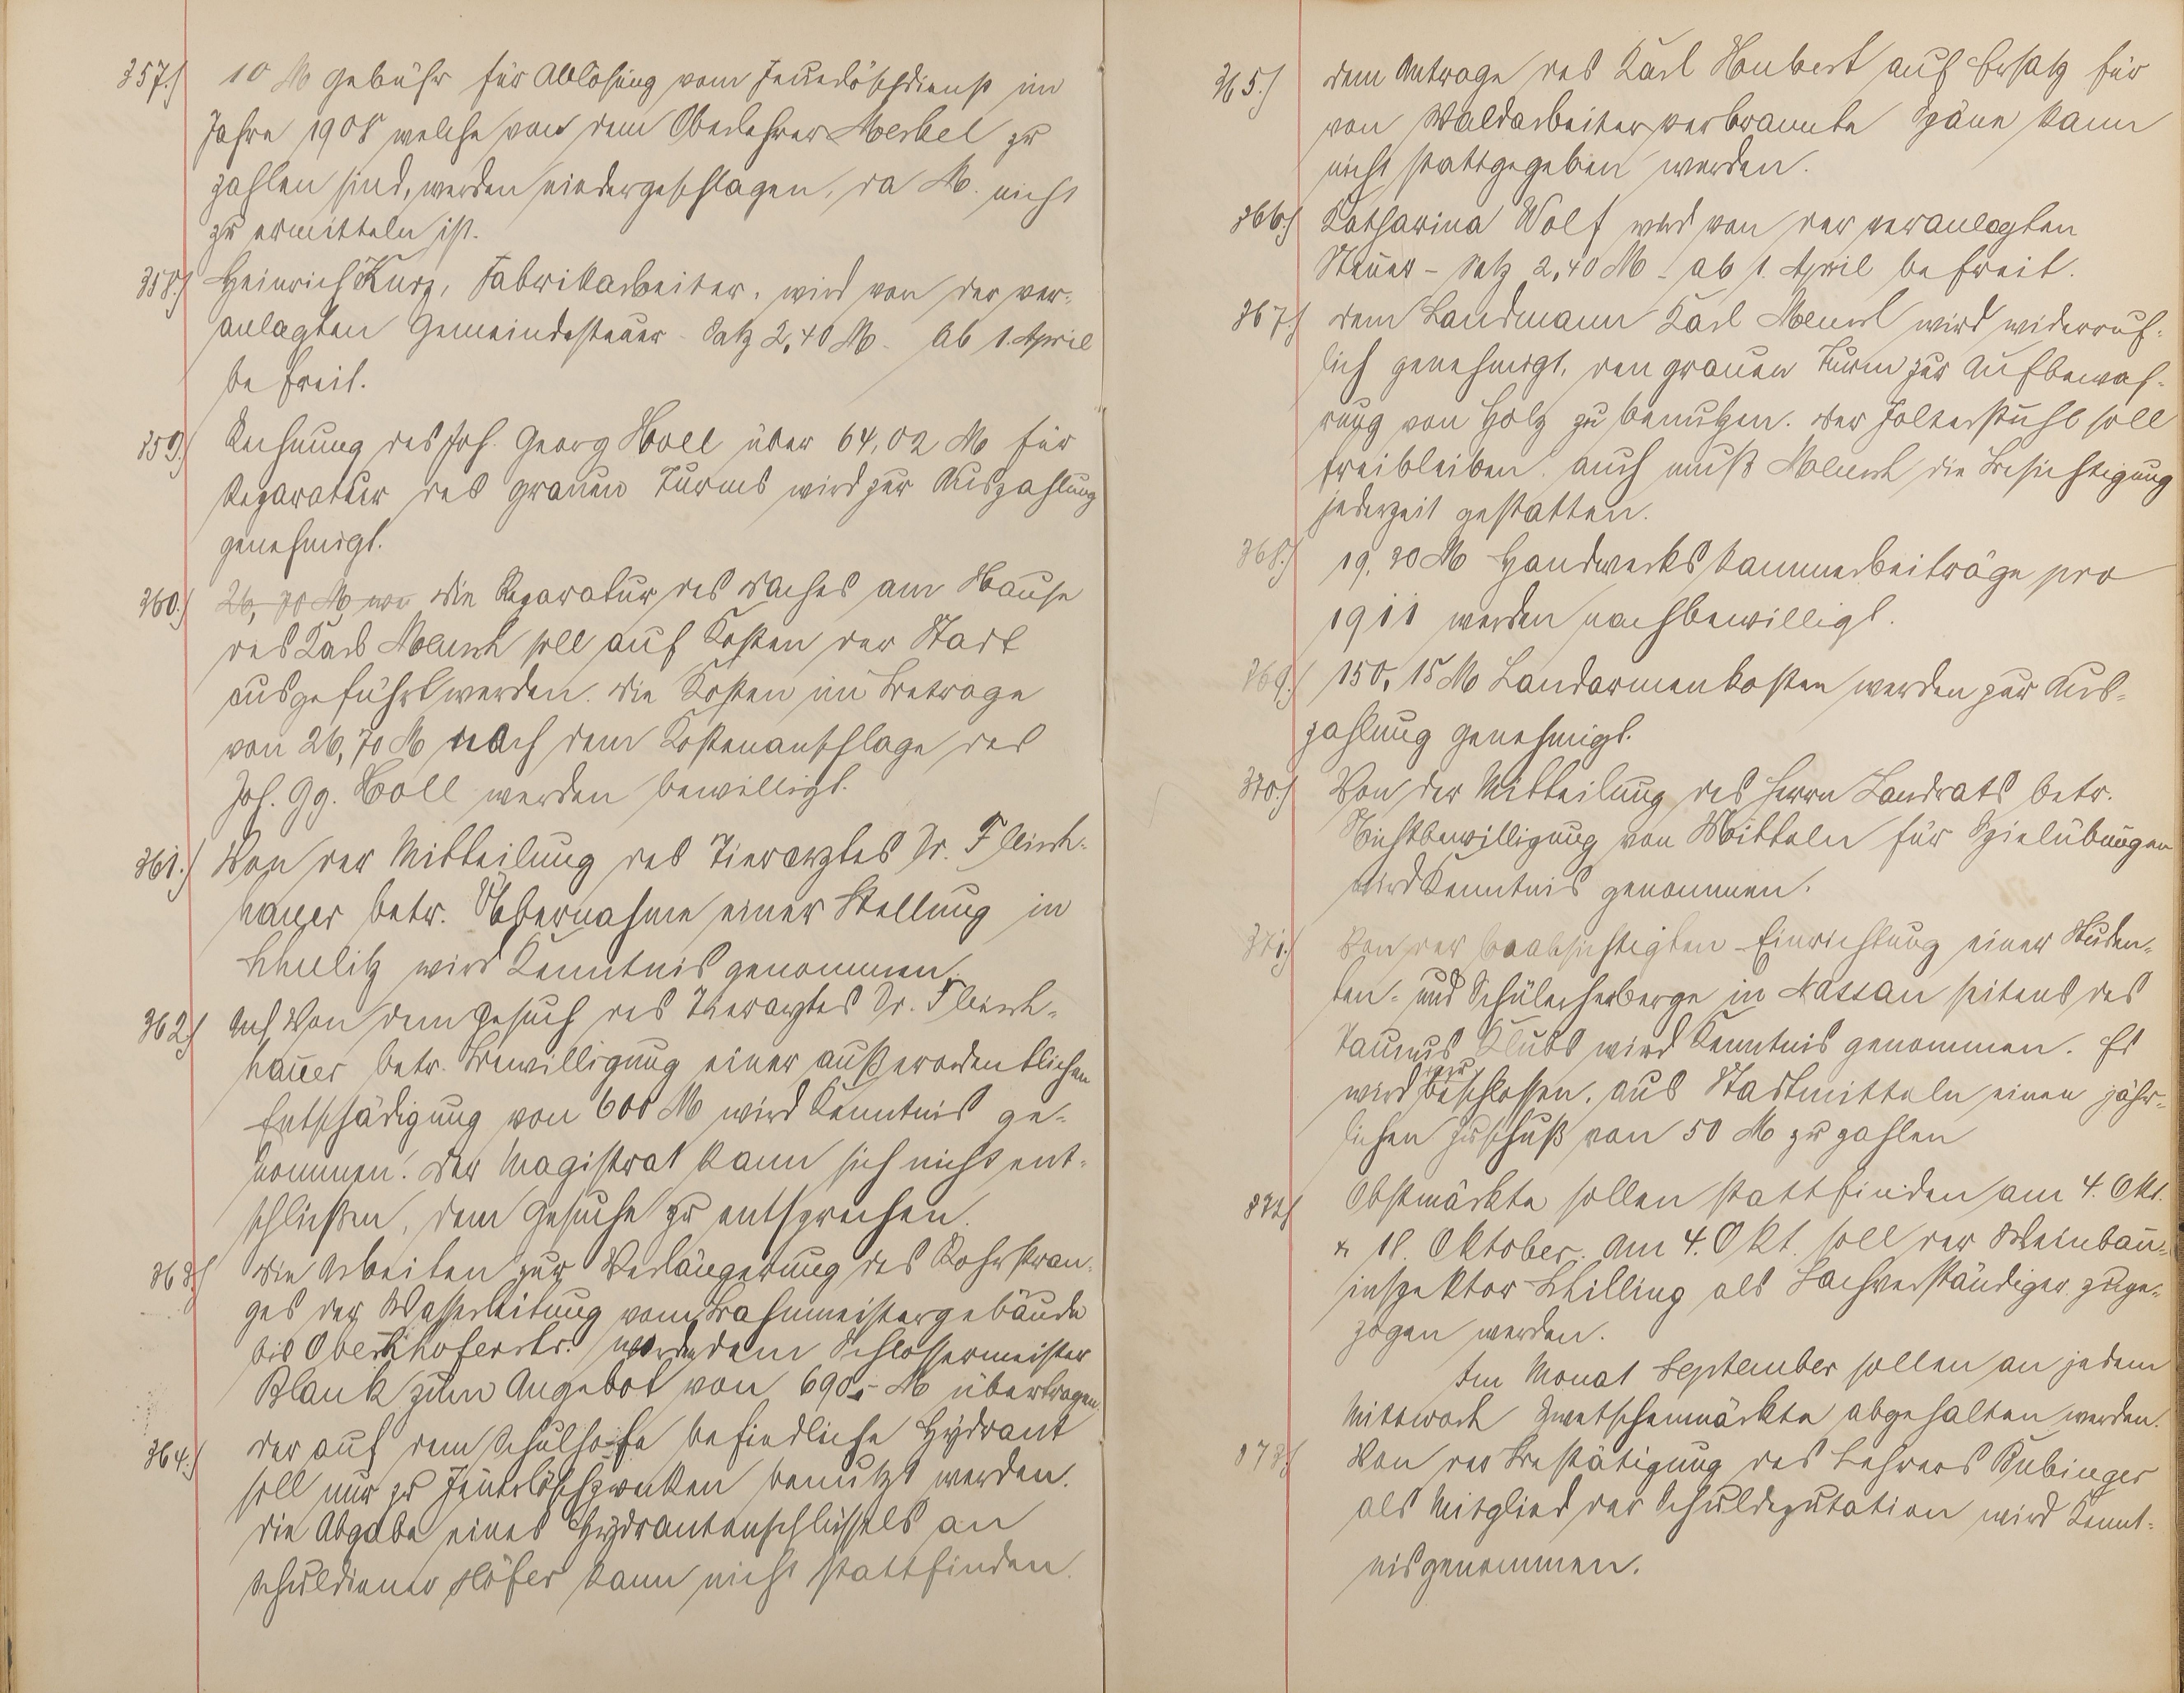 357.) 10 M Gebühr für Ablösung vom Feuerlöschdienst im
Jahre 1908 welche von dem Oberlehrer Merkel zu
zahlen sind, werden niedergeschlagen, da M. nicht
zu ermitteln ist.
358.) Heinrich Kurz, Fabrikarbeiter, wird von der ver-
anlagten Gemeindesteuer - Satz 2,40 M - ab 1. April
befreit.
359.) Rechnung des Joh. Georg Holl über 64,02 M für
Reparatur des grauen Turms wird zur Auszahlung
genehmigt.
360.) 26,70 M we die Reparatur des Daches am Hause
des Karl Mensch soll auf Kosten der Stadt
ausgeführt werden. Die Kosten im Betrage
von 26,70 M nach dem Kostenanschlage des
Joh. Gg. Holl werden bewilligt.
361.) Von der Mitteilung des Tierarztes Dr. Fleisch-
hauer betr. Übernahme einer Stellung in
wird Kenntnis genommen.
362.) Auf Von dem Gesuch des Tierarztes Dr. Fleisch-
hauer betr. Bewilligung einer außerordentlichen
Entschädigung von 600 M wird Kenntnis ge-
nommen. Der Magistrat kann sich nicht ent-
schließen, dem Gesuche zu entsprechen.
363.) Die Arbeiten zur Verlängerung des Rohrstran-
ges der Wasserleitung vom Bahnmeistergebäude
bis Obernhoferstr. werden dem Schlossermeister
Blank zum Angebot von 690,- M übertragen.
364.) Der auf dem Schulhofe befindliche Hydrant
soll nur zu Feuerlöschzwecken benutzt werden.
die Abgabe eines Hydrantenschlüssels an
Schuldiener Höfer kann nicht stattfinden.
365.) Dem Antrage des Karl Haubert auf Ersatz für
von Waldarbeiter verbrannte Späne kann
nicht stattgegeben werden.
366.) Katharina Wolf wird von der veranlagten
Steuer - Satz 2,40 M - ab 1. April befreit.
367.) Dem Landmann Karl Mensch wird widerruf-
lich genehmigt, den grauen Turm zur Aufbewah-
rung von Holz zu benutzen. Der Folterstuhl soll
freibleiben. auch muß Mensch die Besichtigung
jederzeit gestatten.
368.) 19,20 M Handwerkskammerbeiträge pro
1911 werden nachbewilligt.
369.) 150,15 M Landarmenkosten werden zur Aus-
zahlung genehmigt.
370.) Von der Mitteilung des Herrn Landrats betr.
Nichtbewilligung von Mitteln für Spielübungen
wird Kenntnis genommen.
371.) Von der beabsichtigten Einrichtung einer Studen-
ten- und Schülerherberge in Nassau seitens des
Taunus Klubs wird Kenntnis genommen. Es
wird beschlossen, aus Stadtmitteln einen jähr-
lichen Zuschuß von 50 M zu zahlen
372.) Obstmärkte sollen stattfinden am 4. Okt.
& 18. Oktober. Am 4. Okt. soll der Weinbau-
inspektor Schilling als Sachverständiger zuge-
zogen werden.
Im Monat September sollen an jedem
Mittwoch Zwetschenmärkte abgehalten werden.
373.) Von der Bestätigung des Lehrers Kubinger
als Mitglied der Schuldeputation wird Kennt-
nis genommen.